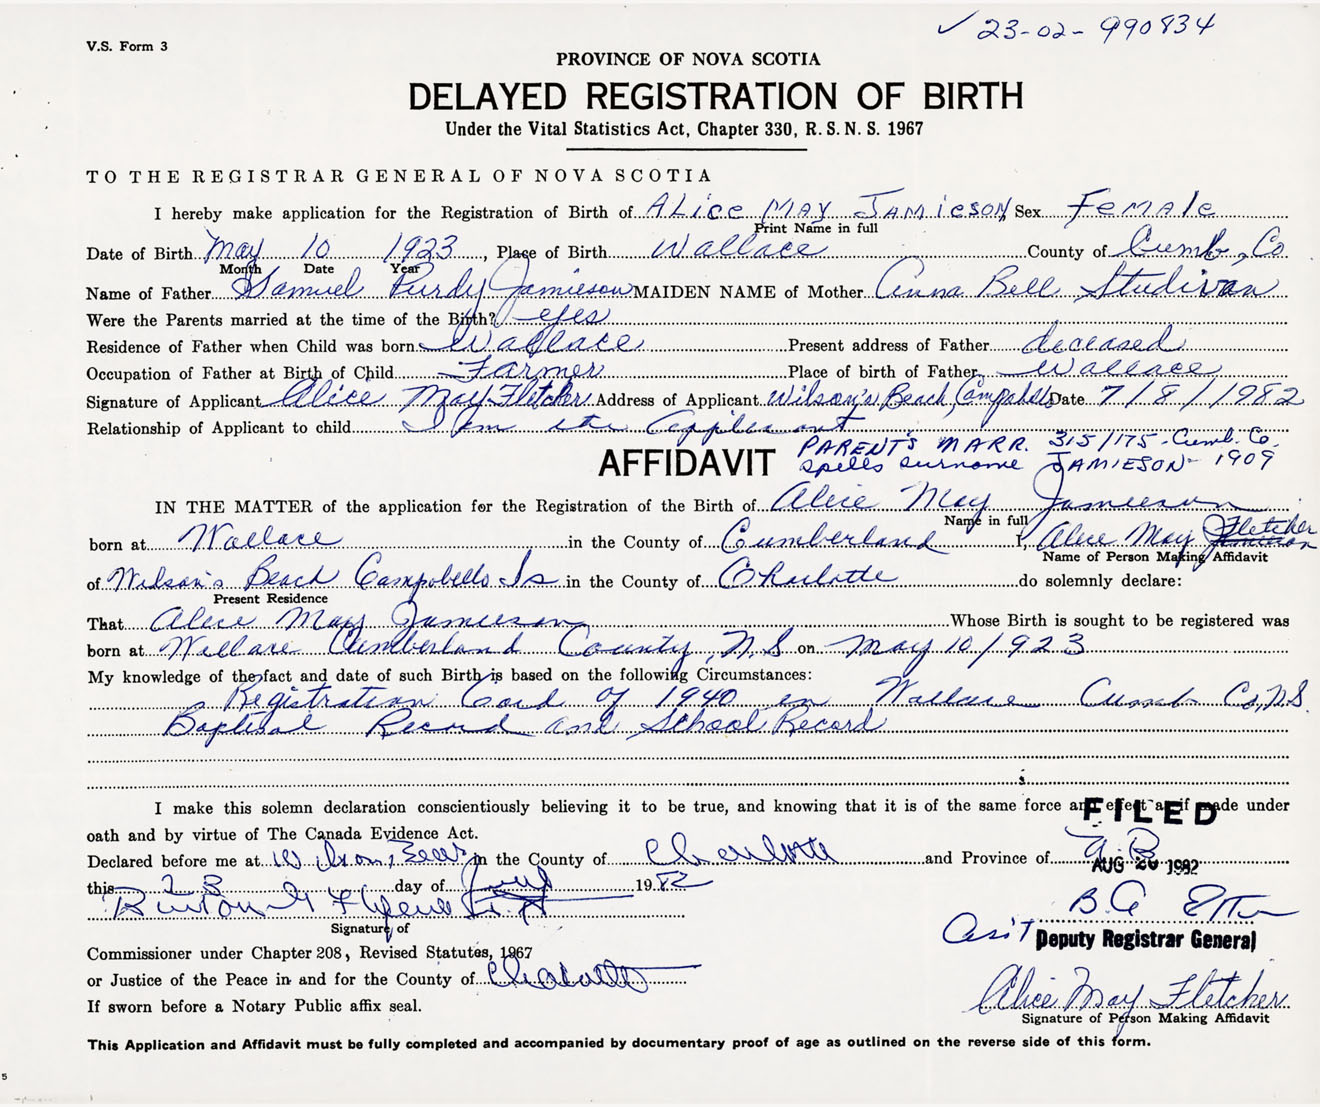 ✓ 23-02-990834
V.S. Form 3
PROVINCE OF NOVA SCOTIA
DELAYED REGISTRATION OF BIRTH
Under the Vital Statistics Act, Chapter 330, R.S.N.S. 1967
TO THE REGISTRAR GENERAL OF NOVA SCOTIA
I hereby make application for the Registration of Birth of Alice May Jamieson, Sex Female
Print Name in full
Date of Birth May 10 1923, Place of Birth Wallace County of Cumb, Co
Month Date Year
Name of Father Samuel Purdy Jamieson MAIDEN NAME of Mother Anna Bell Studivan
Were the Parents married at the time of the Birth? yes
Residence of Father when Child was born Wallace Present address of Father deceased
Occupation of Father at Birth of Child Farmer Place of birth of Father Wallace
Signature of Applicant Alice May Fletcher Address of Applicant Wilson's Beach, Date 7/8/1982
Relationship of Applicant to child I am the Applicant
PARENT'S MARR. 315/175 - Cumb. Co.
AFFIDAVIT spells surname JAMIESON - 1909
IN THE MATTER of the application for the Registration of the Birth of Alice May Jamieson
Name in full
born at Wallace in the County of Cumberland I, Alice May Fletcher
Name of Person Making Affidavit
of Wilson's Beach Campobello Is in the County of Charlotte do solemnly declare:
Present Residence
That Alice May Jamieson Whose Birth is sought to be registered was
born at Wallace Cumberland County, N.S on May 10/1923
My knowledge of the fact and date of such Birth is based on the following Circumstances:
Registration Card of 1940 in Wallace Cumb Co, N.S.
Baptisal Record and School Record
I make this solemn declaration conscientiously believing it to be true, and knowing that it is of the same force and effect as if made under
FILED
oath and by virtue of The Canada Evidence Act.
Declared before me at Wilsons Beach in the County of Charlotte and Province of N.B
AUG 20 1982
this day of 1982
B A Etter
Signature of
Asst Deputy Registrar General
Commissioner under Chapter 208, Revised Statutes, 1967
or Justice of the Peace in and for the County of Charlotte
Alice May Fletcher
If sworn before a Notary Public affix seal.
Signature of Person Making Affidavit
This Application and Affidavit must be fully completed and accompanied by documentary proof of age as outlined on the reverse side of this form.
5